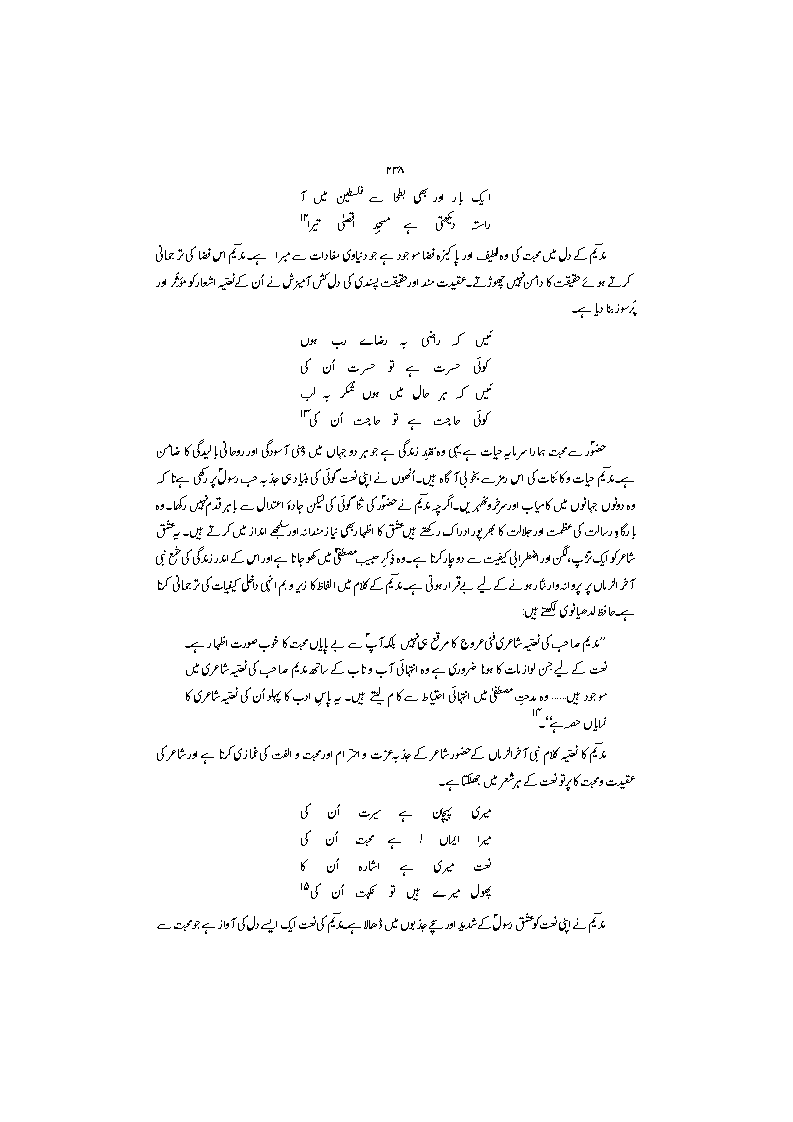 ۲۳۸
ایک بار اور بھی بطحا سے فلسطین میں آ
راستہ دیکھتی ہے مسجدِ اقصٰی تیرا۱۲
ندیمؔ کے دل میں محبت کی وہ لطیف اور پاکیزہ فضا موجود ہے جو دنیاوی مفادات سے مبرا ہے۔ ندیمؔ اس فضا کی ترجمانی
کرتے ہوئے حقیقت کا دامن نہیں چھوڑتے۔ عقیدت مند اور حقیقت پسندی کی دل کش آمیزش نے اُن کے نعتیہ اشعار کو مؤثر اور
پُرسوز بنا دیا ہے۔
مَیں کہ راضی بہ رضاے رب ہوں
کوئی حسرت ہے تو حسرت اُن کی
مَیں کہ ہر حال میں ہوں شکر بہ لب
کوئی حاجت ہے تو حاجت اُن کی۱۳
حضورؐ سے محبت ہمارا سرمایہ حیات ہے یہی وہ نقدِ زندگی ہے جو ہر دو جہاں میں ذہنی آسودگی اور روحانی بالیدگی کا ضامن
ہے۔ ندیمؔ حیات و کائنات کی اس رمز سے بخوبی آگاہ ہیں۔ اُنھوں نے اپنی نعت گوئی کی بنیاد ہی جذبہ حب رسولؐ پر رکھی ہے تا کہ
وہ دونوں جہانوں میں کامیاب اور سرخرو ٹھہریں۔ اگرچہ ندیمؔ نے حضورؐ کی ثنا گوئی کی لیکن جادۂ اعتدال سے باہر قدم نہیں رکھا۔ وہ
بارگاہِ رسالت کی عظمت اور جلالت کا بھرپور ادراک رکھتے ہیں عشق کا اظہار بھی نیازمندانہ اور سلجھے انداز میں کرتے ہیں۔ یہ عشق
شاعر کو ایک تڑپ، لگن اور اضطرابی کیفیت سے دوچار کرتا ہے۔ وہ ذکرِ حبیب مصطفیؐ میں کھو جاتا ہے اور اس کے اندر زندگی کی شمع نبی
آخرالزماں پر پروانہ وار نثار ہونے کے لیے بے قرار ہوتی ہے۔ ندیمؔ کے کلام میں الفاظ کا زیر و بم انہی داخلی کیفیات کی ترجمانی کرتا
ہے۔ حافظ لدھیانوی لکھتے ہیں:
’’ندیم صاحب کی نعتیہ شاعری فنی عروج کا مرقع ہی نہیں بلکہ آپؐ سے بے پایاں محبت کا خوب صورت اظہار ہے۔
نعت کے لیے جن لوازمات کا ہونا ضروری ہے وہ انتہائی آب و تاب کے ساتھ ندیم صاحب کی نعتیہ شاعری میں
موجود ہیں..... وہ مدحتِ مصطفیؐ میں انتہائی احتیاط سے کام لیتے ہیں۔ یہ پاسِ ادب کا پہلو اُن کی نعتیہ شاعری کا
نمایاں حصہ ہے‘‘۔۱۴
ندیمؔ کا نعتیہ کلام نبی آخرالزماں کے حضور شاعر کے جذبہ عزت و احترام اور محبت و الفت کی غمازی کرتا ہے اور شاعر کی
عقیدت و محبت کا پرتو نعت کے ہر شعر میں جھلکتا ہے۔
میری پہچان ہے سیرت اُن کی
میرا ایماں ! ہے محبت اُن کی
نعت میری ہے اشارہ اُن کا
پھول میرے ہیں تو نکہت اُن کی۱۵
ندیمؔ نے اپنی نعت کو عشقِ رسولؐ کے شدید اور سچے جذبوں میں ڈھالا ہے۔ ندیمؔ کی نعت ایک ایسے دل کی آواز ہے جو محبت سے